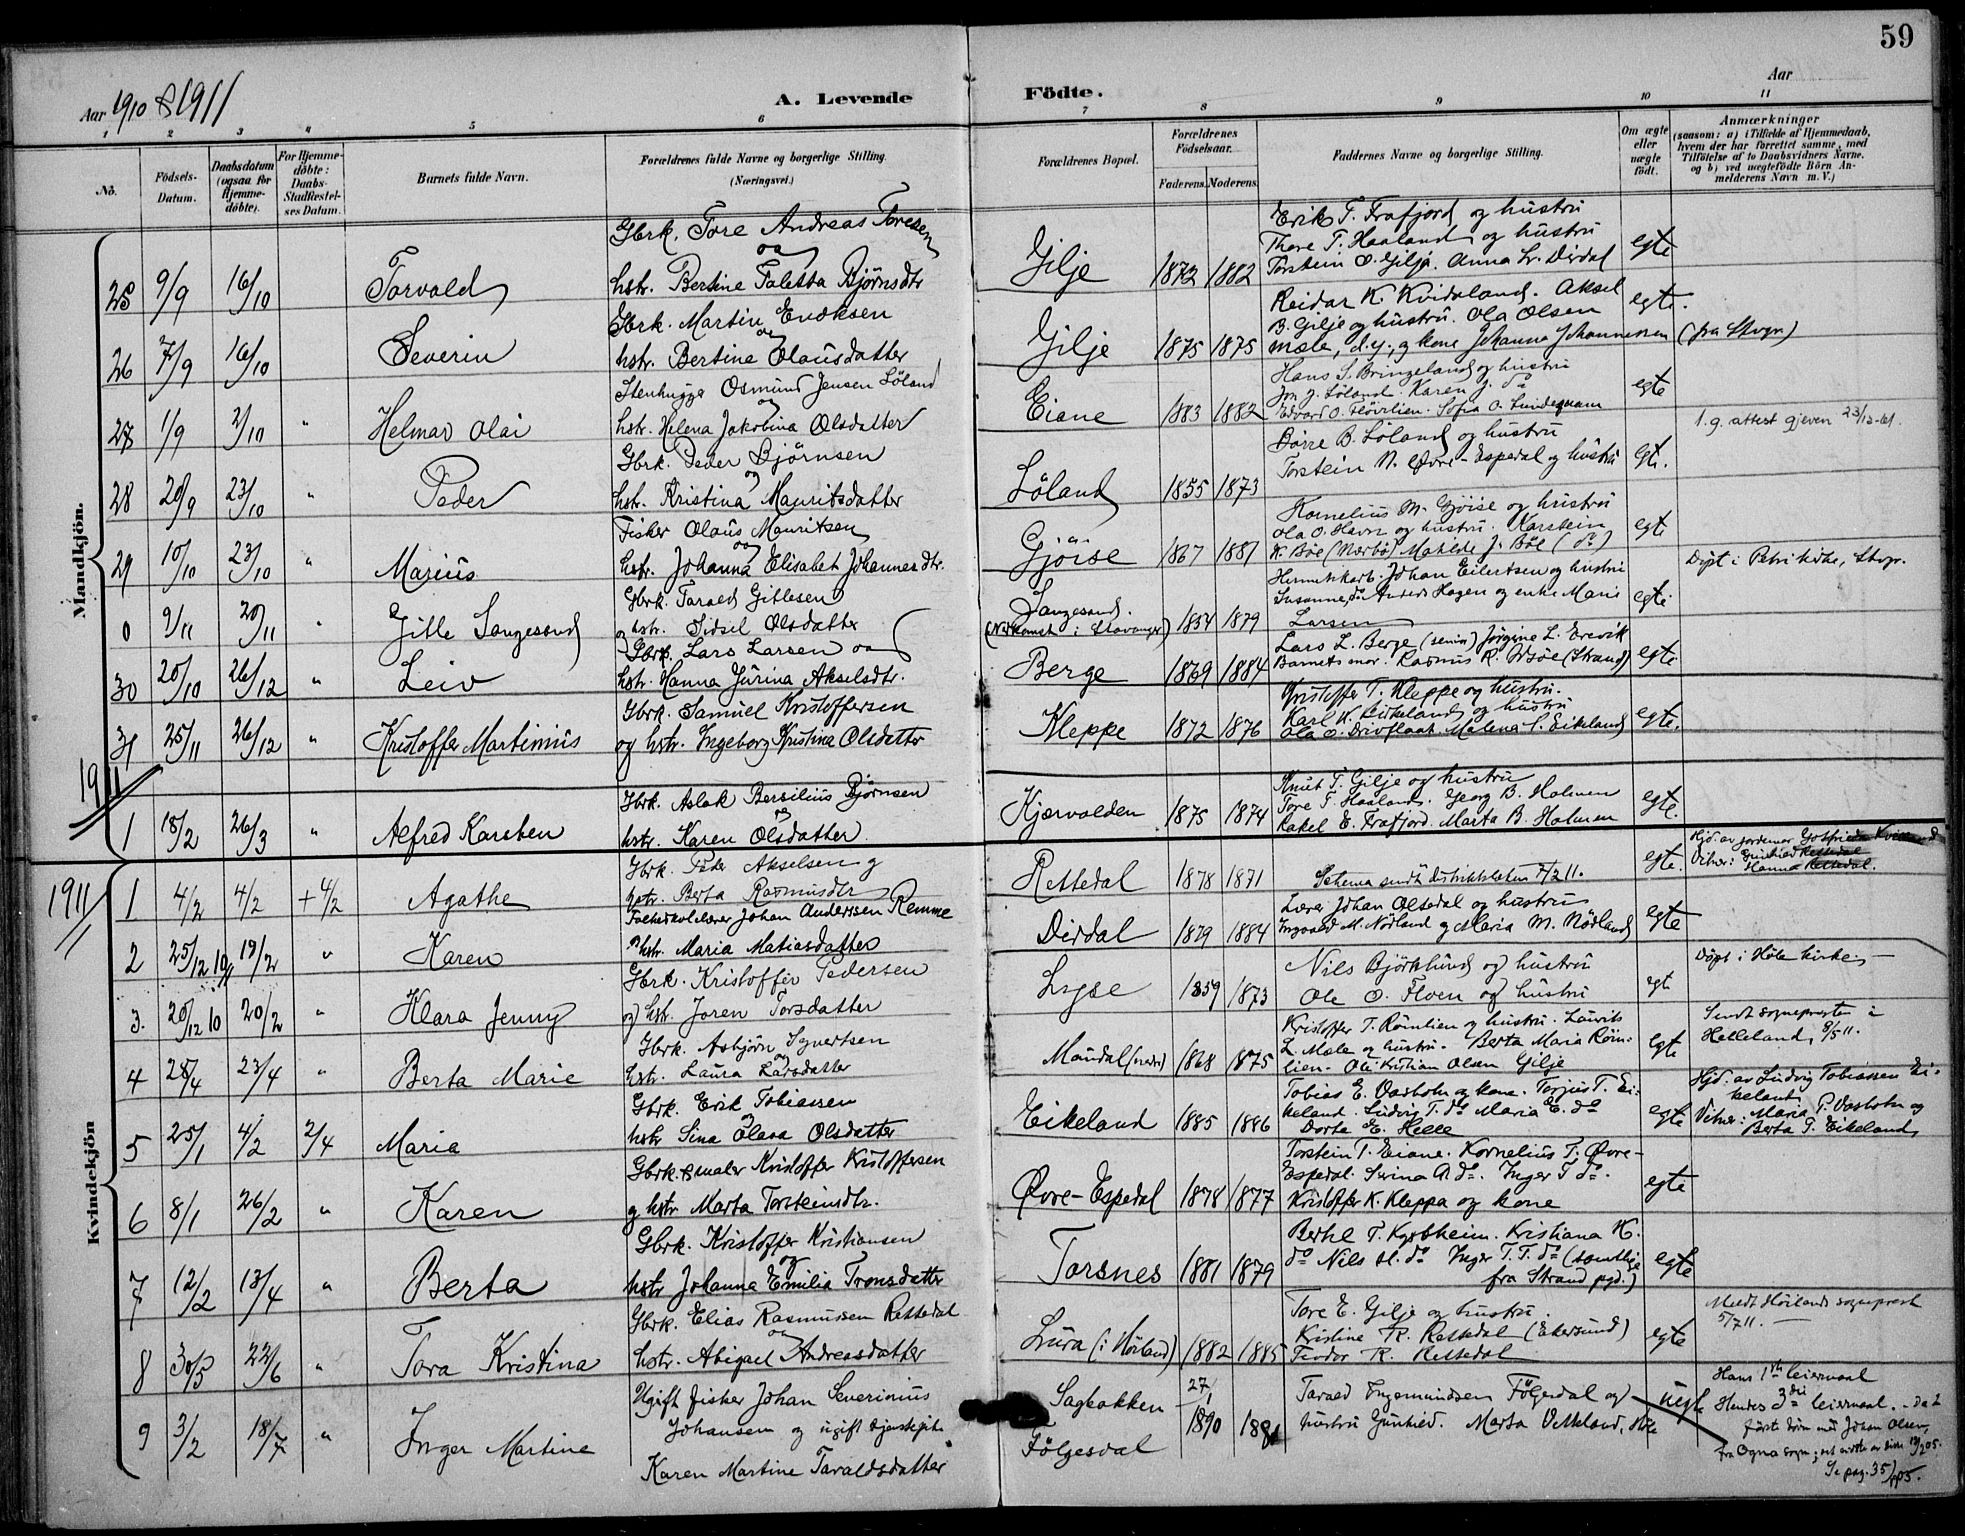 59
Aar 1910 & 1911
A. Levende Födte.
Aar
1 2 3 4 5 6 7 8 9 10 11
No.
Födsels-Datum.
Daabsdatum (ogsaa for Hjemme-döbte).
For Hjemme-döbte: Daabs-Stadfestel-ses Datum.
Barnets fulde Navn.
Forældrenes fulde Navne og borgerlige Stilling. (Næringsvei.)
Forældrenes Bopæl.
Forældrenes Födselsaar.
Faderens. Moderens.
Faddernes Navne og borgerlige Stilling.
Om ægte eller uægte födt.
Anmærkninger (saasom: a) i Tilfælde af Hjemmedaab, hvem der har forrettet samme, med Tilföielse af to Daabsvidners Navne, og b) ved uægtefödte Börn An-melderens Navn m. V.)
Mandkjön.
25 9/9 16/10 Torvald
Gbrk. Tore Andreas Toresen og
hstr. Bertine Taletta Bjørnsdtr
Gilje 1872 1882
Erik T. Frafjord og hustru
Thore T. Haaland og hustru
Torstein O. Gilje. Anna Lr. Dirdal
egte
26 7/9 16/10 Severin
Gbrk. Martin Endksen og
hstr. Bertine Olausdatter
Gilje 1875 1875
Reidar K. Kvidaland. Aksel
B. Gilje og hustru. Ola Olsen
Mæle, d.y., g kone Johanna Johannessen (fra Stvgr)
egte.
27 1/9 2/10 " Helmar Olai
Stenhugge Osmund Jensen Löland og
hstr. Helena Jakobina Olsdatter
Eiane 1883 1882
Hans S. Bringeland og hustru
Jon J. Löland. Karen J. do
Edvard O. Høivlien. Sofia O. Lindeqvam
egte
1. g. attest gjeven 23/12-61.
28 20/9 23/10 " Peder
Gbrk. Peder Björnsen og
hstr. Kristina Mauritsdatter
Löland 1855 1873
Börre B. Löland og hustru
Torstein N. Øvre-Espedal og hustru
egt.
29 10/10 23/10 " Marius
Fisker Olaus Mauritsen og
hstr. Johanna Elisabet Johannesdtr.
Gjöise 1867 1881
Kornelius M. Gjöise og hustru
Ola O. Havn og hustru. Karstein
K. Bøe (Nærbø) Matilde J. Bøe (do)
egte
Döpt i Petri kirke, Stvgr.
0 9/11 20/11 " Gitle Songesand
Gbrk. Tarald Gitlesen
og hstr. Sidsel Olsdatter
Songesand. 1854 1879
Hermetikarb. Johan Eilertsen og hustru
Susanne, do Anders Hagen og enke Marie
Larsen
egte
30 20/10 26/12 " Leiv
Gbrk. Lars Larsen og
hstr. Hanna Jurina Akselsdtr.
Berge 1869 1884
Lars L. Berge (senior) Jörgine L. Erevik
Barnets mor. Rasmus R. (Strand)
egte
31 25/11 26/12 " Kristoffer Martinius
Gbrk. Samuel Kristoffersen
og hstr. Ingeborg Kristina Olsdatter
Kleppe 1872 1876
Kristoffer T. Kleppe og hustru.
Karl K. Birkeland og hustru
Ola O. Drivflaat. Malena S. Eikeland
egte.
1911
1 18/2 26/3 " Alfred Karsten
Gbrk. Aslak Bersilius Bjørnsen og
hstr. Karen Olsdatter.
Kjærvolden 1875 1874
Knut T. Gilje og hustru
Tore T. Haaland. Georg B. Holmen
Rakel E. Frafjord. Marta B. Holmen
egte.
Kvindekjön
1911
1 4/2 4/2 +4/2 Agathe
Gbrk. Peter Akselsen g
hstr. Berta Rasmusdtr
Rettedal 1878 1871
Schema sendt distriktslægen 7/2 11.
egte.
Hjd. av jordemor
Vitner: Gunhild Rettedal
Hanna Rettedal.
2 25/12 10 19/2 " Karen
Folkeskolelærer Johan Anderssen Remme
hstr. Maria Matiasdatter
Dirdal 1879 1884
Lærer Johan Oltedal og hustru
Ingvald M. Nödland g Maria M. Nödland
egte
3. 20/12 10 20/2 " Klara Jenny
Gbrk. Kristoffer Pedersen
og hstr. Joren Torsdatter
Lyse 1859 1873
Nils Björklund og hustru
Ole O. Floen og hustru
egt
Döpt i Höle kirke. —
4 28/4 23/4 " Berta Marie
Gbrk. Asbjørn Sgvertsen og
hstr. Laura Larsdatter
Maudal (nedre) 1868 1875
Kristoffer T. Römlien og hustru. Laurits
L. Mæle og hustru. Berta Maria Röm-
lien. Ole Kristian Olsen Gilje
egte
Sendt sognepresten i
Helleland, 8/5 11.
5 25/1 4/2 2/4 Maria
Gbrk. Erik Tobiassen og
hstr Sina Olava Olsdatter
Eikeland 1885 1886
Tobias E. Vasbotn og kone. Torjus T. Ei-
keland. Ludvig T. do Maria E. do
Dorte E. Helle
egte
Hjd. av Ludvig Tobiassen Ei-
keland
Vitner: Maria G. Vasbotn og
Berta G. Eikeland,
6 8/1 26/2 " Karen
Gbrk. & maler Kristoffer Kristoffersen
g hstr Marta Torsteinsdtr.
Øvre-Espedal 1878 1877
Torstein T. Eiane. Kornelius T. Øvre-
Espedal. Serina A. do. Inger T do.
Kristoffer K. Kleppa og kone
egte
7 12/2 13/4 " Berta
Gbrk. Kristoffer Kristiansen og
hstr Johanna Emilia Tronsdatter
Torsnes 1881 1879
Berthel T. Kyrsheim. Kristiana K.
do Nils H. do Inger T. T. do (samtlige
fra Strand pgd.)
egte
8 30/5 22/6 " Tora Kristina
Gbrk. Elias Rasmussen Rettedal og
hstr. Abigael Andreasdatter
Lura (i Höiland) 1882 1885
Tore E. Gilje og hustru.
Kristine R. Rettedal (Ekersund)
Teodor R. Rettedal
egte
Meldt Höilands sogneprest
5/7 11. —
9 3/2 18/7 " Inger Martine
Ugift fisker Johan Severinius
Johansen og ugift tjenestepike
Karen Martine Taraldsdatter
Sagbakken
Fölgesdal
27/1 1890 1881
Tarald Ingemundsen Fölgesdal og
hustru Gunhild. Marta Vekland, Höle
uegte
Hans 1ste leiermaal
Hendes 3die leiermaal. - De 2
første börn med Johan Olsen,
fra Ogna sogn;
Se pag. 35